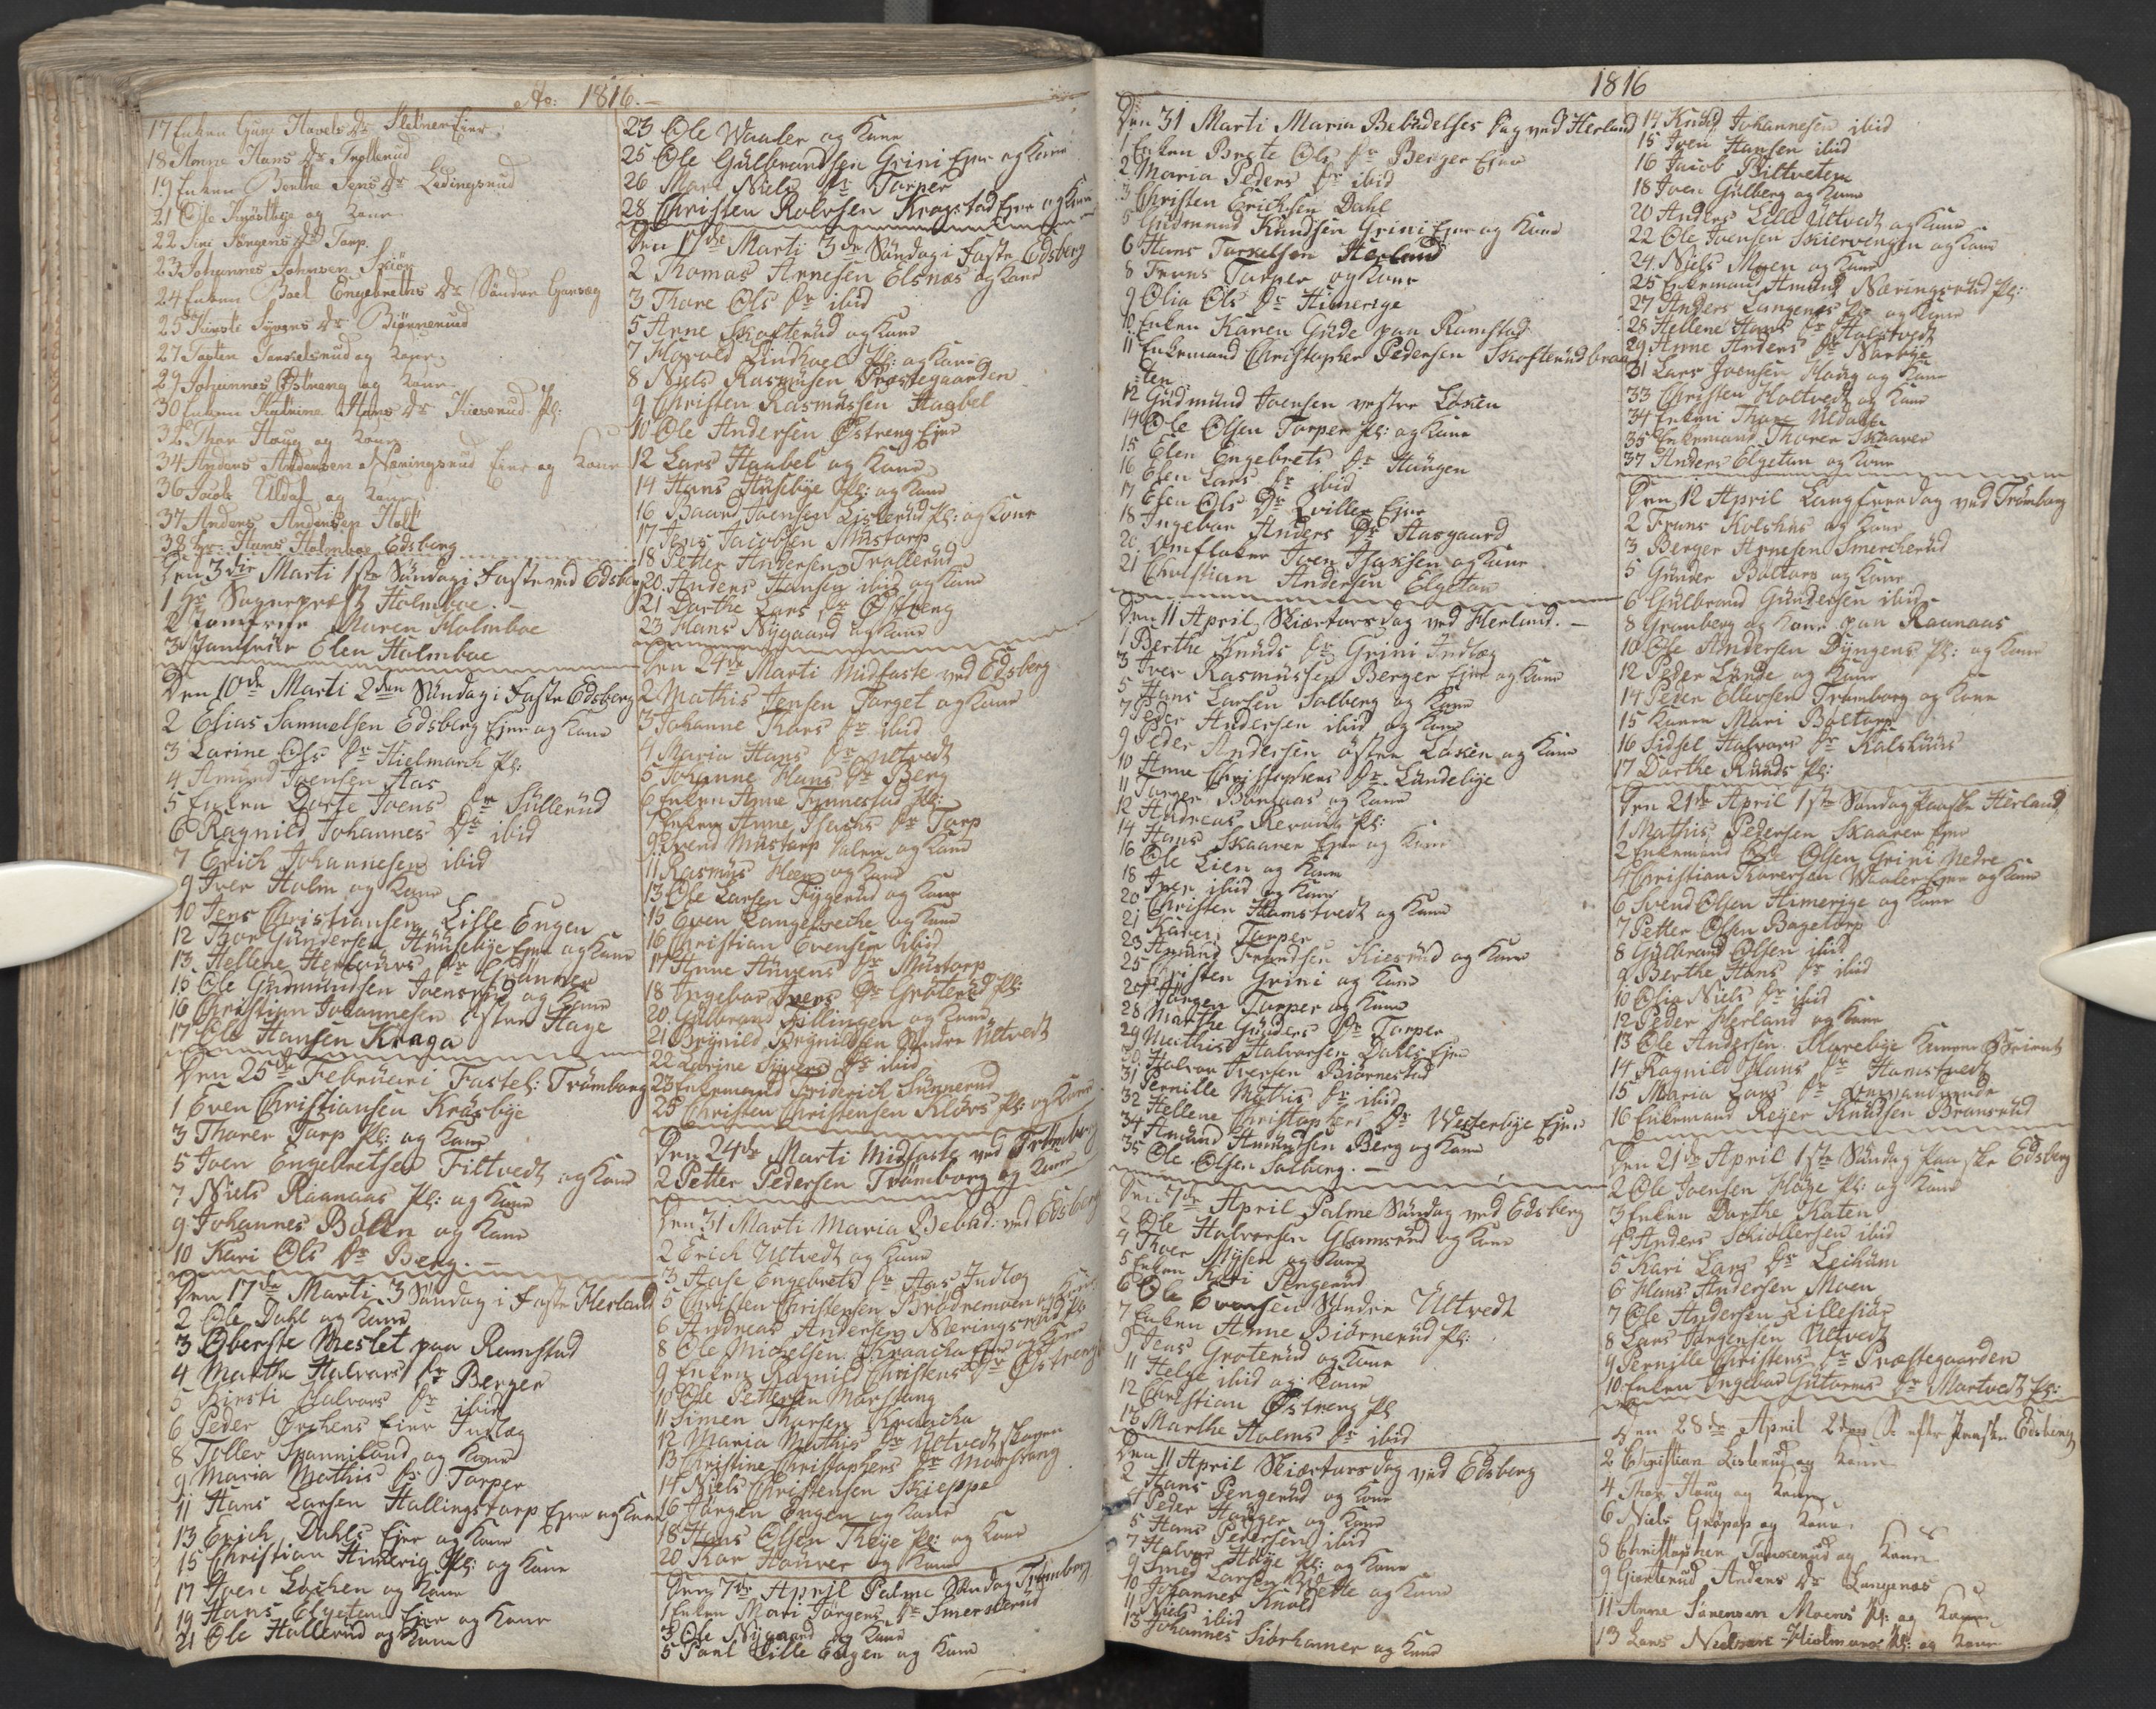 Ao: 1816.
17 Enken Gune Havels Dr Sletner Eier
18 Anne Hans Dr Trollerud
19 Enken Berthe Jens Dr Lidingsrud
21 Ole Knøstbye og Kone
22 Siri Jörgens Dr Torp
23 Johannes Johnsen Skiør
24 Enken Boel Engebrethe Dr Söndre Garseg
25 Kirste Syvers Dr Biørnerud
27 Torsten Torkelsrud og Kone
29 Johannes Østreng og Kone
30 Enken Kathrine Hans Dr Kieserud Pl:
32 Thor Houg og Kone
34 Anders Andersen Næringsrud Eier og Kone
36 Jacob Uldal og Kone
37 Anders Andersen Holt
38 Hr: Hans Holmboe Edsberg
Den 3die Marti 1ste Söndag i Faste ved Edsberg
1 Hr Sognepræst Holmboe.
2 Jomfrue Maren Holmboe
3 Jomfrue Elen Holmboe
Den 10de Marti 2den Söndag i Faste Edsberg
2 Elias Samuelsen Edsberg Eier og Kone
3 Larine Ols Dr Hielmark Pl:
4 Amund Joensen Aas
5 Enken Dorte Joens Dr Sullerud
6 Ragnild Johannes Dr ibid
7 Erich Johannesen ibid
9 Iver Holm og Kone
10 Jens Christiansen Lille Engen
12 Thor Gundersen Huusebye Eier og Kone
13 Hellene
15 Ole Gudmundsen Joensrud og Kone
16 Christian Johannesen østre Hage
17 Ole Hansen Kraga
Den 25de Februari Fastel: Trömborg
1 Even Christiansen Kräsbye
3 Thorer Torp Pl: og Kone
5 Joen Engebretsen Filtvedt og Kone
7 Niels Raanaas Pl: og Kone
9 Johannes Bölen og Kone
10 Kari Ols Dr Berg.
Den 17de Marti 3 Söndag i Faste Herland
2 Ole Dahl og Kone
3 Oberste Meslet paa Ramstad
4 Marthe Halvors Dr Berger
5 Kirsti Halvors Dr ibid
6 Peder Ørchens Eier Indlæg
8 Toller Spannilund og Kone
9 Maria Mathis Dr Torper
11 Hans Larsen Hallingstorp Eier og Kone
13 Erich Dahls Eier og Kone
15 Christian Himerig Pl: og Kone
17 Iver Löchen og Kone
19 Hans Elgetun Eier og Kone
21 Ole Hallerud og Kone
23 Ole Waaler og Kone
25 Ole Gulbrandsen Grini Eier og Kone
26 Mari Niels Dr Torper
28 Christen Rolvsen Kragstad Eier og Kone
Den 17de Marti 3de Söndag i Faste Edsberg
2 Thomas Arnesen Elsnæs og Kone
3 Thore Ols Dr ibid
5 Arne Skofterud og Kone
7 Harald Lindhoel Pl: og Kone
8 Niels Rasmusen Præstegaarden
9 Christen Rasmussen Haabel
10 Ole Andersen Østreng Eier
12 Lars Haabel og Kone
14 Hans Husebye Pl: og Kone
16 Baard Joensen Listerud Pl: og Kone
17 Jens Jacobsen Mustorp
18 Petter Andersen Trollerud
20 Anders Hansen ibid og Kone
21 Dorthe Lars Dr Østreng
23 Hans Nygaard og Kone
Den 24de Marti Midfaste ved Edsberg
2 Mathis Jensen Farget og Kone
3 Johanne Thors Dr ibid
4 Maria Hans Dr Ultvedt
5 Johanne Hans Dr Berg
6 Enken Anne Finnestad Pl:
7 Enken Anne Isachs Dr Torp
9 Svend Mustorp og Kone
11 Rasmus Heer og Kone
13 Ole Larsen Tygerud og Kone
15 Even Langebreche og Kone
16 Christian Evensen ibid
17 Anne Auvens Dr Mustorp
18 Ingebor Ivers Dr Groterud Pl:
20 Gulbrand Fillingen og Kone
21 Brynild Brynildsen Söndre Ultvedt
22 Larine Sivers Dr ibid
23 Enkemand Friderich Sugnerud
25 Christen Christensen Klövs Pl: og Kone
Den 24de Marti Midfaste ved Trömborg
2 Petter Pedersen Trömborg og Kone
Den 31 Marti Maria Bebud: ved Edsberg
2 Erich Ultvedt og Kone
3 Aase Engebrets Dr Aas Indlæg
5 Christen Christensen Brödremoen og Kone
6 Andreas Andersen Næringsrud Pl
8 Ole Michelsen Kraacha Eier og Kone
9 Enken Ragnild Christens Dr Østreng
10 Ole Pettersen Morstang
11 Simen Thorsen Kraacha
12 Maria Mathis Dr Ultvedt skoven
13 Christine Christophers Dr Morstang
14 Niels Christensen Skieppe
16 Jörgen Engen og Kone
18 Hans Olsen Theye Pl: og Kone
20 Haurer og Kone
Den 7de April Palme Söndag Trömborg
1 Enken Mari Jörgens Dr Smerkerud
3 Ole Nygaard og Kone
5 Poul Lille Engen og Kone
1816
Den 31 Marti Maria Bebudelses Dag ved Herland
1 Enken Brete Ols Dr Berger Eier
2 Maria Peders Dr ibid
3 Christen Erichsen Dahl
5 Gudmund Knudsen Grini Eier og Kone
6 Hans Torkelsen Herland
8 Frans Torper og Kone
9 Olia Ols Dr Himerige
10 Enken Karen Gude paa Ramstad
11 Enkemand Christopher Pedersen Skofterud braa
ten
12 Gudmund Joensen vestre Löken
14 Ole Olsen Torper Pl: og Kone
15 Elen Engebrets Dr Haugen
16 Elen Lars Dr ibid
17 Elen Ols Dr Qviller Eier
18 Ingebor Anders Dr Aasgaard
20 Omfloker Joen Isaksen og Kone
21 Christian Andersen Elgetun
Den 11 April Skiertorsdag ved Herland.
1 Berthe Knuds Dr Grini Indlæg
3 Iver Rasmussen Berger Eier og Kone
5 Hans Larsen Solberg og Kone
7 Peder Andersen ibid og Kone
9 Peder Andersen östre Löken og Kone
10 Anne Christophers Dr Lundebye
11 Torger Börsaas og Kone
12 Andreas Revaug Pl:
14 Hans Skaaren Eier og Kone
16 Ole Lien og Kone
18 Iver ibid og Kone
20 Christen Hamstvedt og Kone
21 Karen Torper
23 Amund Frandsen Kiesrud og Kone
25 Christen Grini og Kone
27 Jörgen Torper og Kone
28 Marthe Gunders Dr Torper
29 Mathis Halvorsen Dahls Eier
30 Halvor Iversen Biörnestad
31 Pernille Mathis Dr ibid
32 Hellene Christophers Dr Westerbye Eier
34 Amund Amundsen Berg og Kone
35 Ole Olsen Solberg.
Den 7de April Palme Söndag ved Edsberg
2 Ole Halvorsen Glamsrud og Kone
4 Thor Mysen og Kone
5 Enken Kari Pengerud
6 Ole Evensen Söndre Ultvedt
7 Enken Anne Biörnerud Pl:
9 Jens Groterud og Kone
11 Helge ibid og Kone
12 Christian Østreng Pl
13 Marthe Holms Dr ibid
Den 11 April Skiertorsdag ved Edsberg
2 Hans Pengerud og Kone
4 Peder Hauger og Kone
5 Hans Pedersen ibid
7 Halvor Høye Pl: og Kone
9 Smed Larsen og Kone
10 Johannes Knold
11 Niels ibid
13 Johannes Siörhamer og Kone
14 Knud Johannesen ibid
15 Iver Hansen ibid
16 Jacob Biltveten
18 Joen Gulberg og Kone
20 Anders Lille Ultvedt og Kone
22 Ole Joensen Skiervengen og Kone
24 Niels Moen og Kone
25 Enkemand Amund Næringsrud Pl:
27 Anders Langenæs Pl: og Kone
28 Hellene Hans Dr Holstvedt
29 Anne Anders Dr Narbye
31 Lars Joensen Houg og Kone
33 Christen Holtvedt og Kone
34 Enken Thore Uldal
35 Enkemand Thorer Skaaren
37 Anders Elgetun og Kone
Den 12 April Langfredag ved Trömborg
2 Frans Kolshus og Kone
3 Berger Arnesen Smercherud
5 Gunder Boltorp og Kone
6 Gulbrand Gundersen ibid
8 Gramberg og Kone paa Raanaas
10 Ole Andersen Dyngens Pl: og Kone
12 Peder Lunde og Kone
14 Peder Ellevsen Trömborg og Kone
15 Karen Mari Boltorp
16 Sidsel Halvors Dr Kolshuus
17 Dorthe Ruuds Pl:
Den 21de April 1ste Söndag Paaske Herland
1 Mathis Pedersen Skaaren Eier
2 Enkemand Ole Olsen Grini Nedre
4 Christian Torersen Waaler Eier og Kone
6 Svend Olsen Himerige og Kone
7 Petter Olsen Bagetorp
8 Gulbrand Olsen ibid
9 Berthe Hans Dr ibid
10 Olia Niels Dr ibid
12 Peder Herland og Kone
13 Ole Andersen Slorebye
14 Ragnild Hans Dr Hamstvedt
15 Maria Lars Dr
16 Enkemand Reyer Knudsen Bransrud
Den 21de April 1ste Söndag Paaske Edsberg
2 Ole Joensen Høye Pl: og Kone
3 Enken Dorthe Katen
4 Anders Schiollersen ibid
5 Kari Lars Dr Leikam
6 Hans Andersen Moen
7 Ole Andersen Lillesiär
8 Lars Jörgensen Ultvedt
9 Pernille Christens Dr Præstegaarden
10 Enken Ingebor Gutorms Dr Martvedt Pl:
Den 28de April 2den S: efter Paaske Edsberg
2 Christian Listerud og Kone
4 Thor Houg og Kone
6 Niels Gröpop og Kone
8 Christopher Tanserud og Kone
9 Giertrud Anders Dr Langenæs
11 Arne Sörensen Moens Pl: og Kone
13 Lars Nielsen Hielmark Pl: og Kone